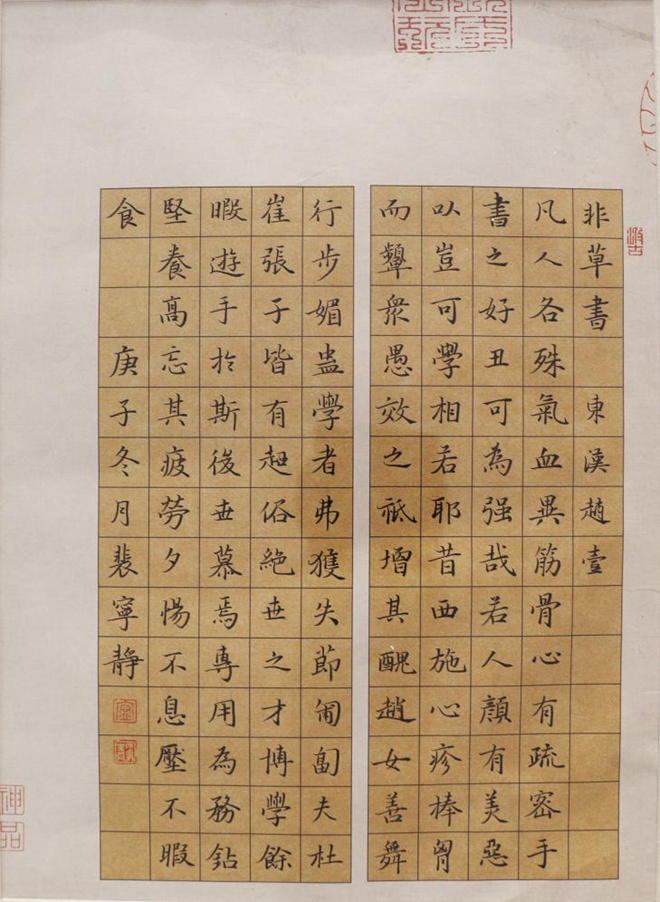 非草書 東漢趙壹
凡人各殊氣血異筋骨心有疏密手
書之好丑可為强哉若人顏有美惡
以豈可學相若耶昔西施心疹捧胷
而顰衆愚效之祗增其醜趙女善舞
行步媚蠱學者弗獲失節匍匐夫杜
崔張子皆有超俗絕世之才博學餘
暇遊手於斯後世慕焉專用為務鉆
堅養高忘其疲勞夕惕不息壓不暇
食 庚子冬月裴寧靜
神品